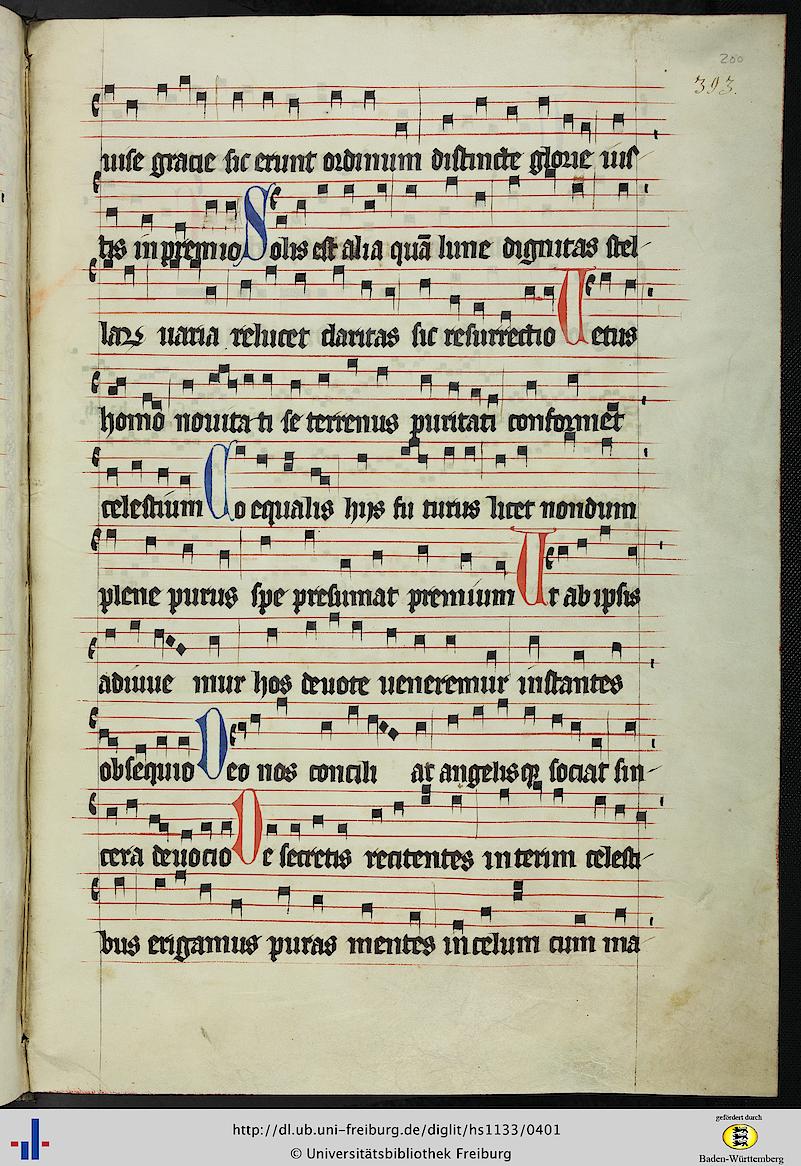 200
393.
uise gracie sic erunt ordinum distincte glorie uis
tis in premio Solis est alia quā lune dignitas stel-
laꝝ uaria relucet claritas sic resurrectio Vetus
homo nouita ti se terrenus puritati conformet
celestium Coequalis hijs fu turus licet nondum
plene purus spe presumat premium Vt ab ipsis
adiuue mur hos deuote ueneremur instantes
obsequio Deo nos concili at angelisqꝫ sociat sin-
cera deuocio De secretis recitentes interim celesti-
bus erigamus puras mentes in celum cum ma
http://dl.ub.uni-freiburg.de/diglit/hs1133/0401
© Universitätsbibliothek Freiburg
gefördert durch
Baden-Württemberg